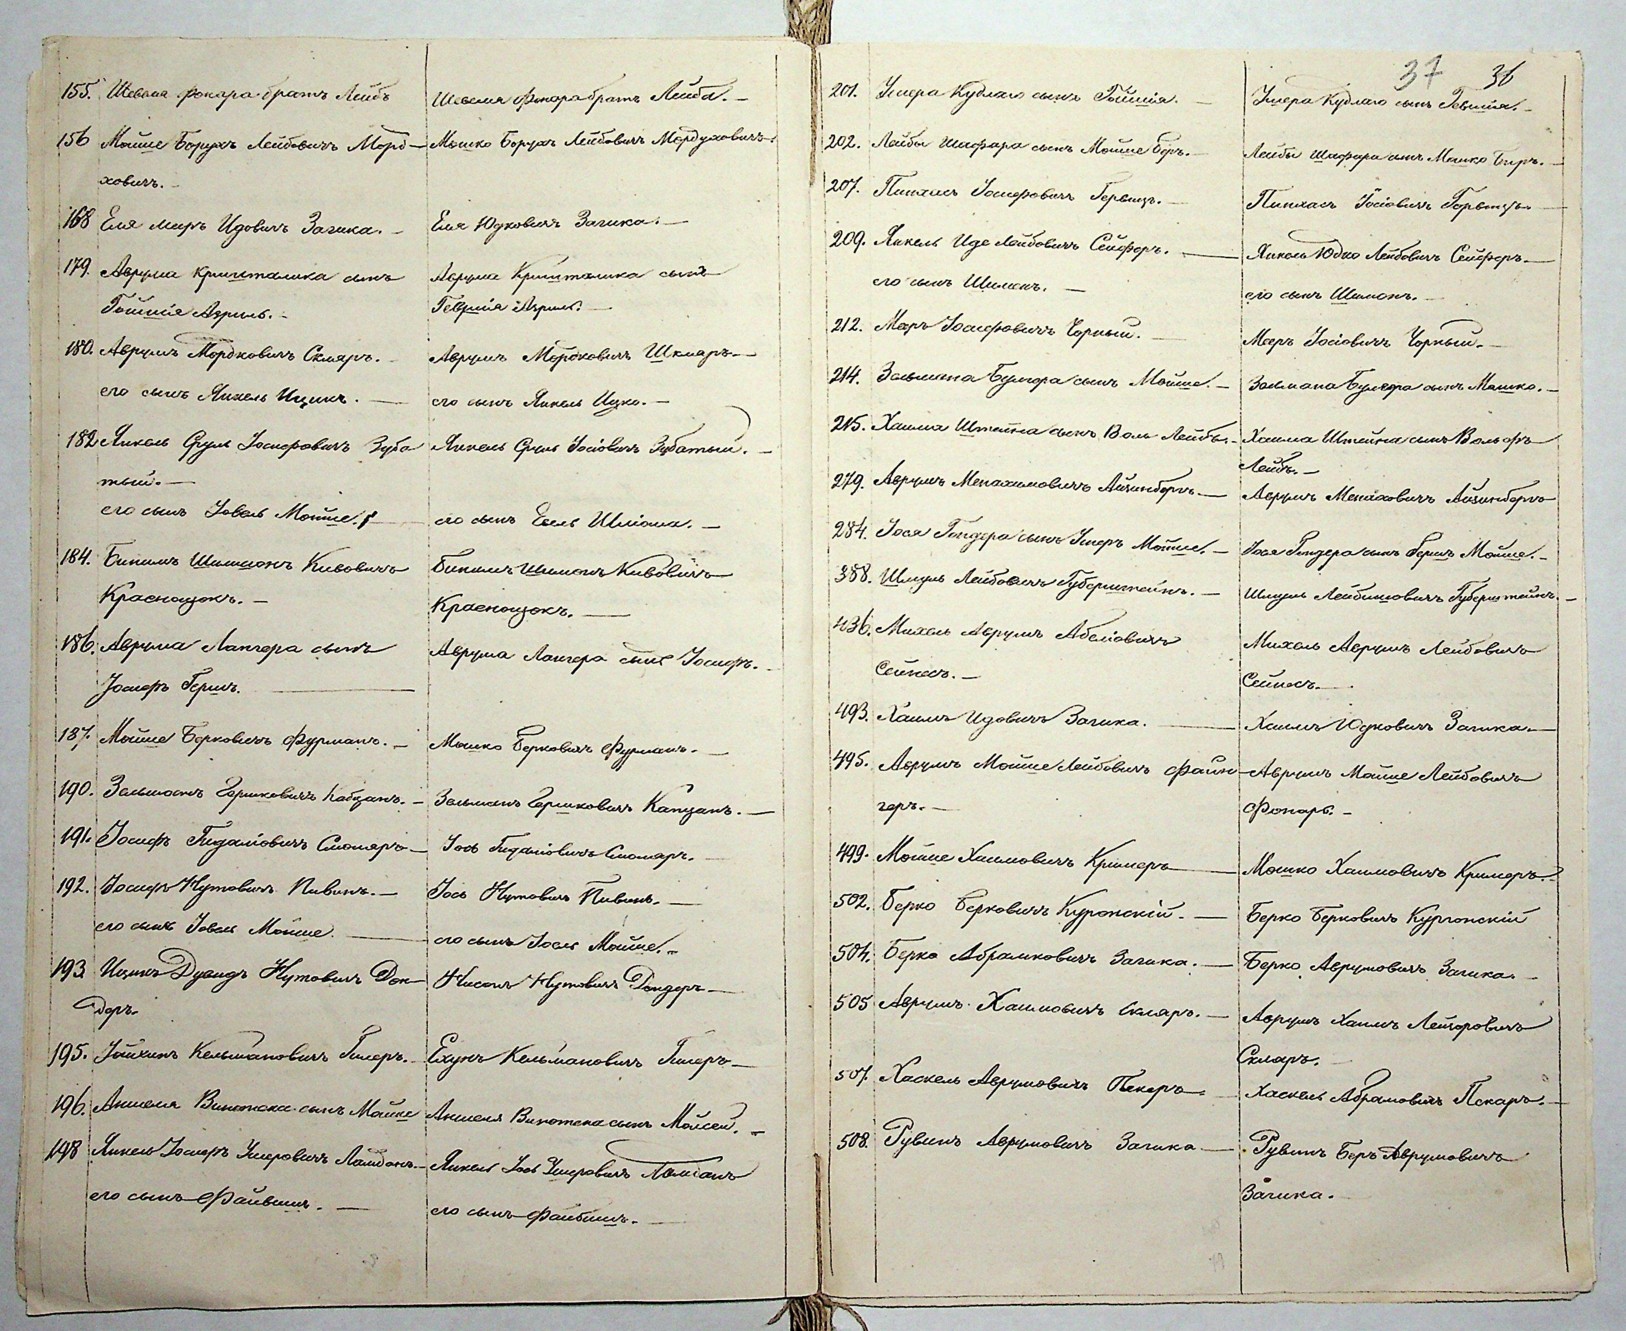 155. Шевеля Фокара братъ Лейбъ
Шевеля Фокара братъ Лейба. —
156 Мойше Борухъ Лейбовичъ Морд-
ховичъ. —
Мошко Борухъ Лейбовичъ Мордуховичъ.
168 Еля Меръ Идовичъ Загика. —
Еля Юдковичъ Загика. —
179. Аврума Кришталика сынъ
Гойшія Азриль. —
Аврума Кришталика сынъ
Гевшія Азриль. —
180. Аврумъ Мордковичъ Скляръ. —
его сынъ Янкель Ицикъ. —
Аврумъ Мордковичъ Шкляръ. —
его сынъ Янкель Ицко. —
182 Янкель Сруль Іосифовичъ Зуба
тый. —
его сынъ Іовель Мойше.
Янкель Сруль Іосіовичъ Зубатый. —
его сынъ Евель Шліома. —
184. Бинимъ Шимшонъ Кивовичъ
Краснощокъ. —
Бинимъ Шимонъ Кивовичъ
Краснощокъ. —
186. Аврума Лангера сынъ
Іосифъ Гершъ. —
Аврума Лангера сынъ Іосифъ. —
187. Мойше Берковичъ Фурманъ. —
Мошко Берковичъ Фурманъ. —
190. Зельманъ Гершковичъ Кабцанъ. —
Зельманъ Гершковичъ Капцанъ. —
191. Іосифъ Гидаліовичъ Смоляръ —
Іось Гидаліовичъ Смоляръ. —
192. Іосифъ Нутовичъ Пивинь. —
его сынъ Іовель Мойше. —
Іось Нутовичъ Пивинь. —
его сынъ Іоель Мойше. —
193 Ицикъ Дувидъ Нутовичъ Ден-
деръ.
Нисонъ Нутовичъ Гендеръ —
195. Кельмановичъ Гилеръ. —
Ехунъ Кельмановичъ Гилеръ —
196. Аншеля Винокека сынъ Мойше
Аншеля Винокека сынъ Мойсей. —
198 Янкель Іосифъ Умеровичъ Ламбанъ. —
его сынъ Файвишъ. —
Янкель Іось Умеровичъ
его сынъ Файбишъ. —
37 36
201. Умера Кудлаго сынъ Гойшія. —
Умера Кудлаго сынъ Гевшія. —
202. Лейбы Шафара сынъ Мойше Беръ. —
Лейбы Шафара сынъ Мошко Беръ. —
207. Пинхасъ Іосифовичъ Гервицъ. —
Пинхасъ Іосіовичъ Горвицъ. —
209. Янкель Иде Лейбовичъ Сейферъ. —
его сынъ Шимонъ. —
Янкель Юдко Лейбовичъ Сейферъ. —
его сынъ Шимонъ. —
212. Меръ Іосифовичъ Чорный. —
Мееръ Іосіовичъ Чорный. —
214. Зельмана Булфера сынъ Мойше. —
Зельмана Булфера сынъ Мошко. —
215. Хаима Штейна сынъ Воль Лейбъ. —
Хаима Штейна сынъ Вольфъ
Лейбъ. —
279. Аврумъ Менахимовичъ Айзинбергъ —
Аврумъ Мениховичъ Айзинбергъ
284. Іося Гендера сынъ Умеръ Мойше. —
Іося Гендера сынъ Гершъ Мойше. —
388. Шмуль Лейбовичъ Губерштейнъ. —
Шмуль Лейбишовичъ Губерштейнъ. —
436. Михель Аврумъ Абеліовичъ
Сейнесъ. —
Михель Аврумъ Лейбовичъ
Сейнесъ. —
493. Хаимъ Идовичъ Загика. —
Хаимъ Юдковичъ Загика. —
495. Аврумъ Мойше Лейбовичъ Файн-
геръ. —
Аврумъ Мойше Лейбовичъ
Фонарь. —
499. Мойше Хаимовичъ Кримеръ —
Мошко Хаимовичъ Кримеръ. —
502. Берко Берковичъ Куронскій. —
Берко Берковичъ Кургонскій
504. Берко Абрамковичъ Загика. —
Берко Аврумовичъ Загика. —
505 Аврумъ Хаимовичъ Скляръ. —
Аврумъ Хаимъ Лейзеровичъ
Скляръ. —
507. Хаскель Аврумовичъ Пекеръ —
Хаскель Абрамовичъ Пекаръ. —
508. Рувинъ Аврумовичъ Загика —
Рувинъ Беръ Аврумовичъ
Загика.